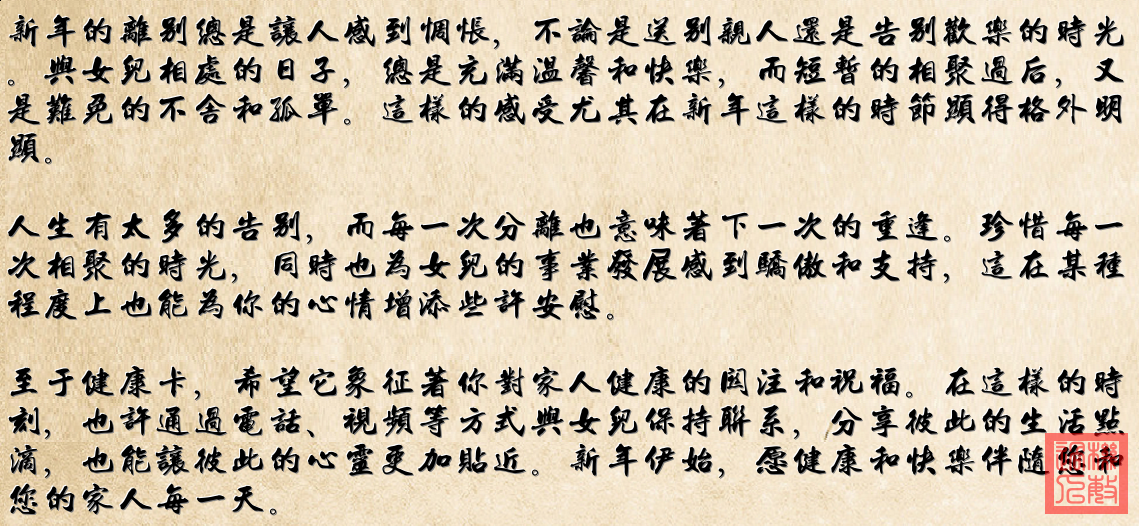 新年的離別總是讓人感到惆悵，不論是送別親人還是告別歡樂的時光
。與女兒相處的日子，總是充滿溫馨和快樂，而短暫的相聚過后，又
是難免的不舍和孤單。這樣的感受尤其在新年這樣的時節顯得格外明
顯。
人生有太多的告別，而每一次分離也意味著下一次的重逢。珍惜每一
次相聚的時光，同時也為女兒的事業發展感到驕傲和支持，這在某種
程度上也能為你的心情增添些許安慰。
至于健康卡，希望它象征著你對家人健康的関注和祝福。在這樣的時
刻，也許通過電話、視頻等方式與女兒保持聯系，分享彼此的生活點
滴，也能讓彼此的心靈更加貼近。新年伊始，愿健康和快樂伴隨您和
您的家人每一天。